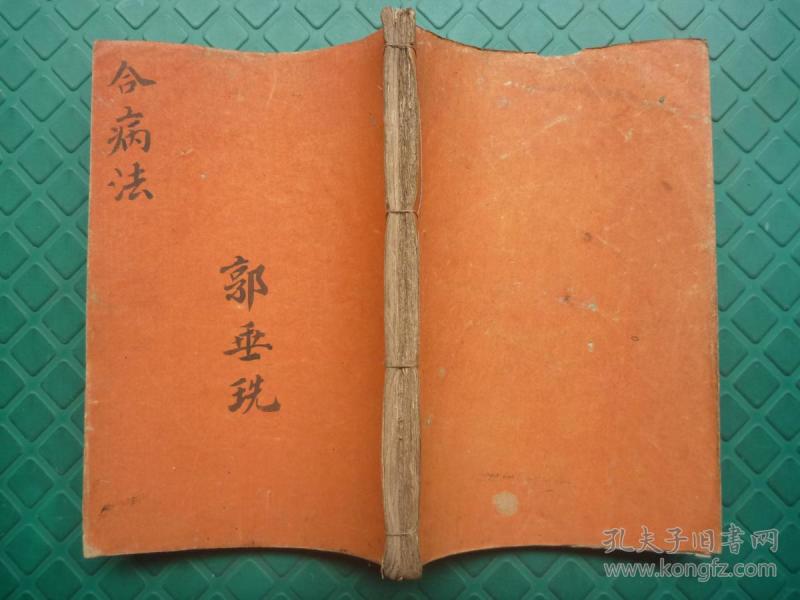 合病法
郭垂珗
孔夫子旧书网
www.kongfz.com